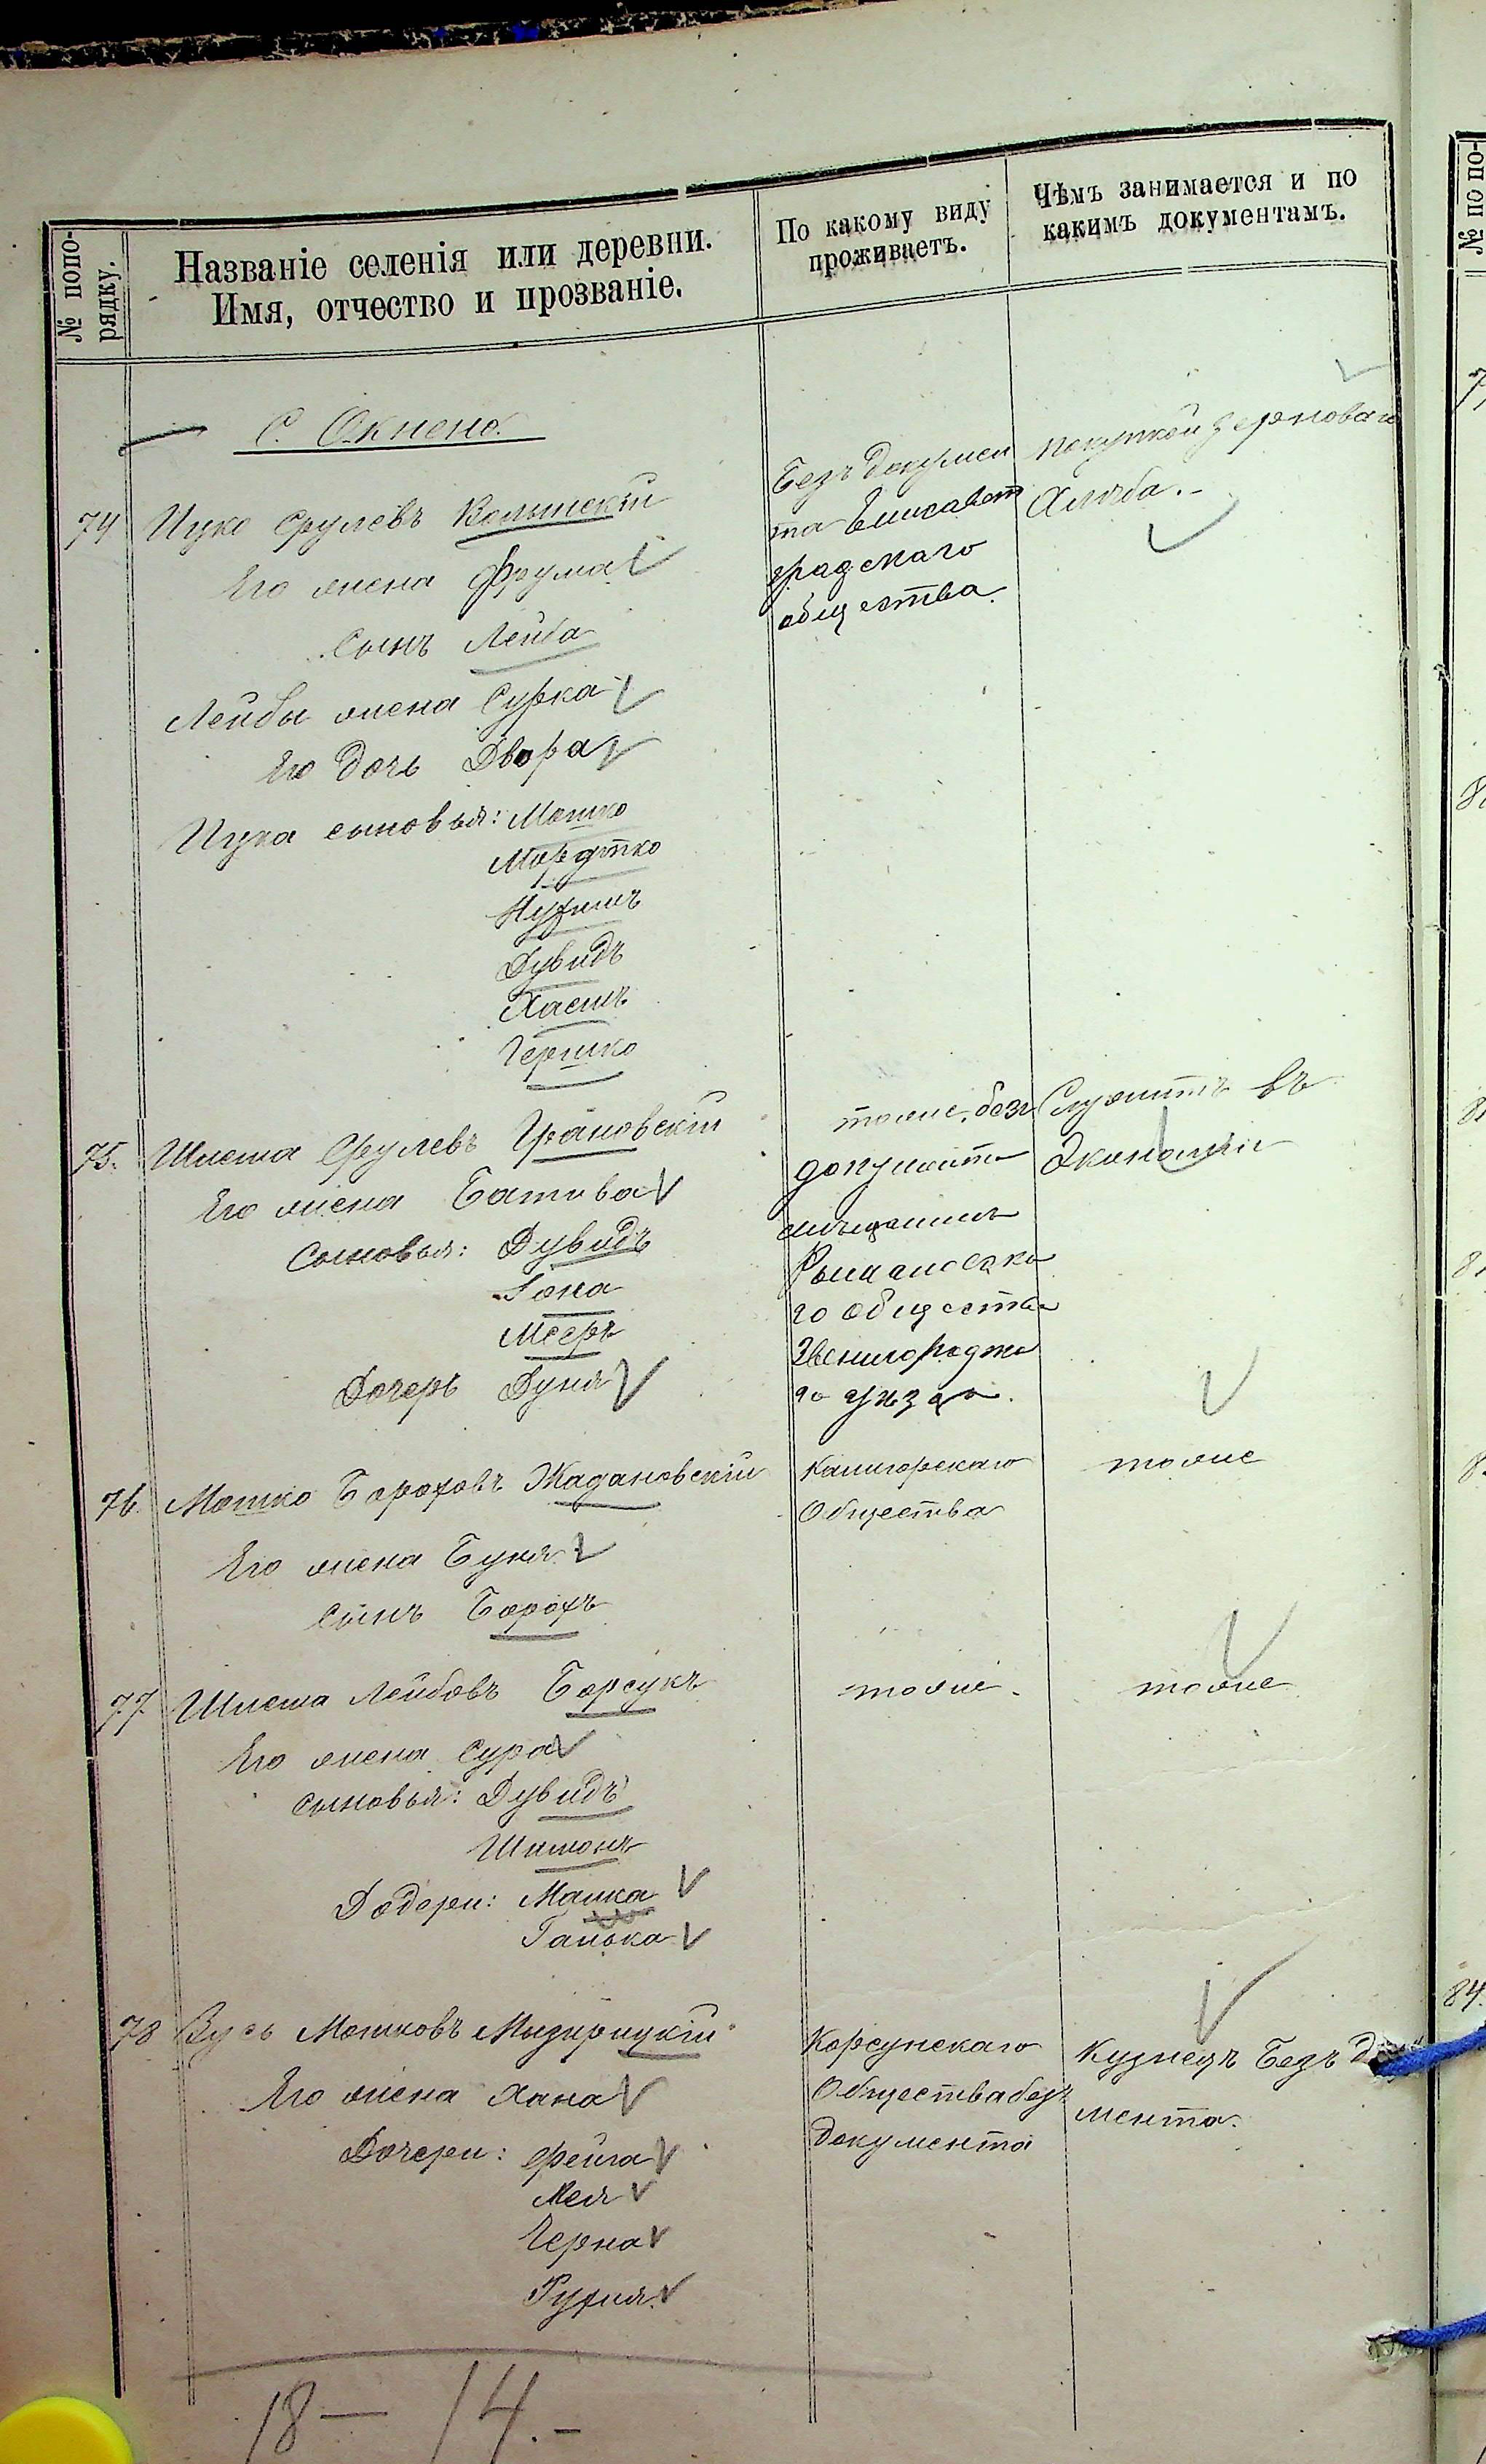 № попо-
рядку.
Названіе селенія или деревни.
Имя, отчество и прозваніе.
По какому виду
проживаетъ.
Чѣмъ занимается и по
какимъ документамъ.
С. Окнено.
74 Ицко Срулевъ
Его жена Фрума
Сынъ Лейба
Лейбы жена Сурка
Его дочь Двора
Ицка сыновья: Мошко
Мордтко
Нухимъ
Дувидъ
Хаимъ
Гершко
Безъ докумен
та Елисавет
градскаго
общества.
покупкой зерноваго
хлѣба.-
75. Шлема Срулевъ Грановскій
Его жена Батива
Сыновья: Дувидъ
Іона
Мееръ
Дочерь Дуня
тоже, безъ
документа
мѣщанинъ
го общества
Звенигородска
го уѣзда.
Служитъ въ
Экономіи
76. Мошко Бороховъ Жадановскій
Его жена Буня
Сынъ Борохъ
Калигорскаго
Общества
тоже
77 Шлема Лейбовъ Борсукъ
Его жена Сура
сыновья: Дувидъ
Шимонъ
Дочери: Малка
Ганька
тоже.
тоже
78 Зусь Мошковъ Мизирицкій
Его жена Хана
Дочери: Фейга
Лея
Черна
Рухля
Корсунскаго
Общества без
документа
Кузнецъ Безъ
мента.
18 — 14.-
№ по по-
84.